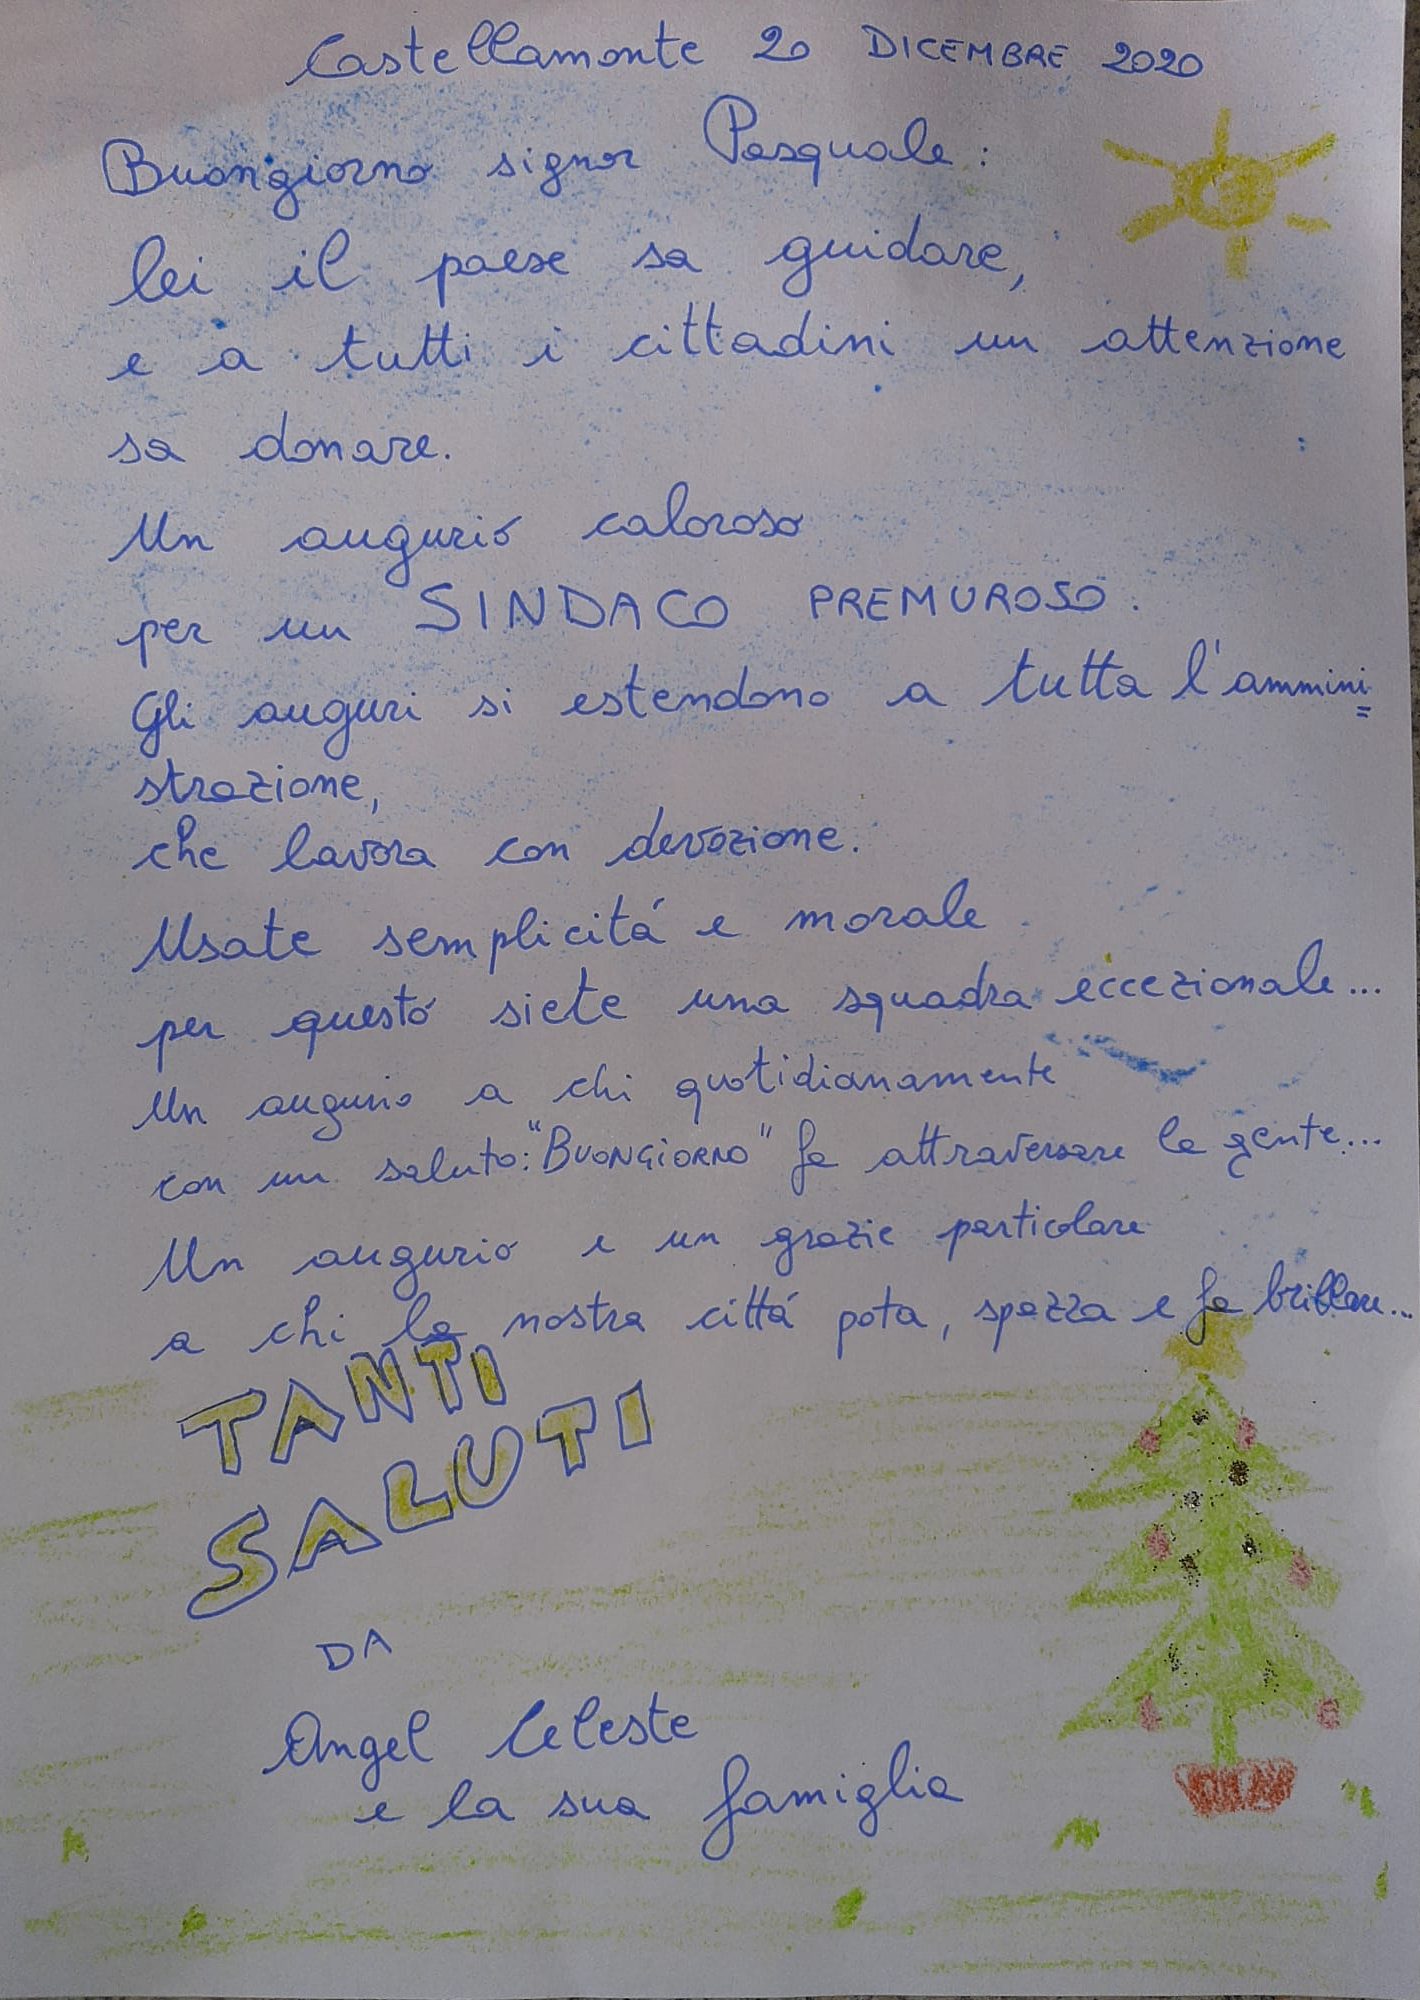 Castellamonte 20 DICEMBRE 2020
Buongiorno signor Pasquale:
lei il paese sa guidare,
e a tutti i cittadini un attenzione
sa donare.
Un augurio caloroso
per un SINDACO PREMUROSO.
Gli auguri si estendono a tutta l'ammini=
strazione,
che lavora con devozione.
Usate semplicitá e morale
per questo siete una squadra eccezionale...
Un augurio a chi quotidianamente
con un saluto: "BUONGIORNO" fa attraversare la gente...
Un augurio e un grazie particolare
a chi la nostra cittá pota, spazza e fa brillare...
TANTI
SALUTI
DA
Angel Celeste
e la sua famiglia